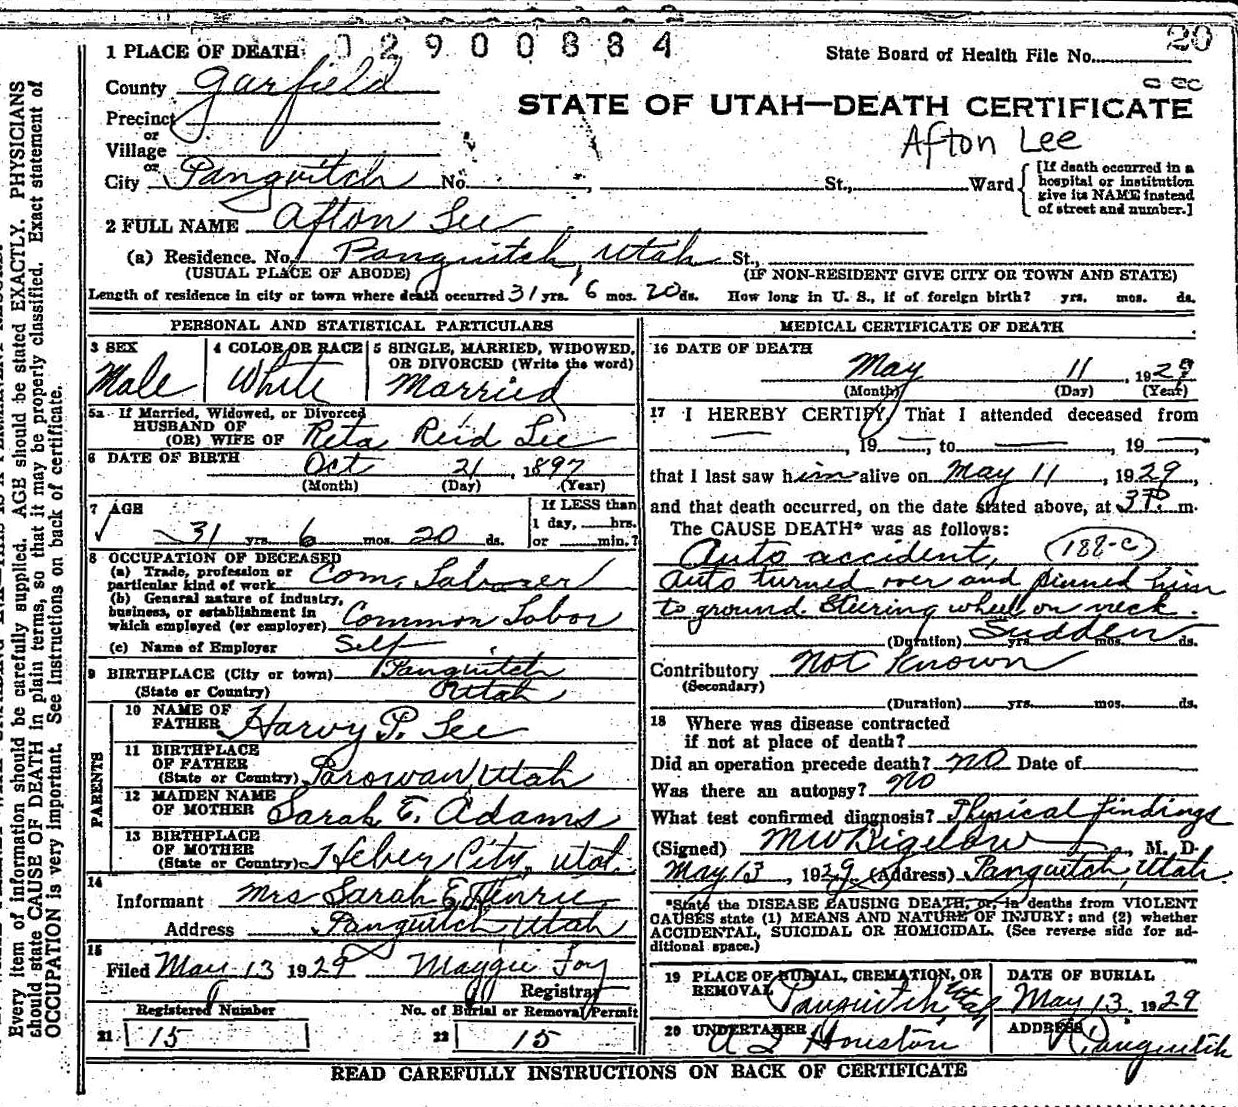 1 PLACE OF DEATH 02900884 State Board of Health File No. 20
County Garfield
STATE OF UTAH—DEATH CERTIFICATE
Precinct
or
Village
Afton Lee
or
City Panguitch No. , St., Ward
[If death occurred in a hospital or institution give its NAME instead of street and number.]
2 FULL NAME Afton Lee
(a) Residence. No. Panguitch, Utah St.,
(USUAL PLACE OF ABODE) (IF NON-RESIDENT GIVE CITY OR TOWN AND STATE)
Length of residence in city or town where death occurred 31 yrs. 6 mos. 20 ds. How long in U. S., if of foreign birth? yrs. mos. ds.
PERSONAL AND STATISTICAL PARTICULARS
3 SEX
Male
4 COLOR OR RACE
White
5 SINGLE, MARRIED, WIDOWED,
OR DIVORCED (Write the word)
Married
5a If Married, Widowed, or Divorced
HUSBAND OF
(OR) WIFE OF Reta Reid Lee
6 DATE OF BIRTH Oct 21, 1897
(Month) (Day) (Year)
7 AGE
31 yrs. 6 mos. 20 ds.
If LESS than
1 day, hrs.
or min.?
8 OCCUPATION OF DECEASED
(a) Trade, profession or
particular kind of work Com. Laborer
(b) General nature of industry,
business, or establishment in
which employed (or employer) Common Labor
(c) Name of Employer Self
9 BIRTHPLACE (City or town) Panguitch
(State or Country) Utah
PARENTS
10 NAME OF
FATHER Harvy P. Lee
11 BIRTHPLACE
OF FATHER
(State or Country) Parowan, Utah
12 MAIDEN NAME
OF MOTHER Sarah E. Adams
13 BIRTHPLACE
OF MOTHER
(State or Country) Heber City, Utah.
14
Informant Mrs Sarah E Henrie
Address Panguitch, Utah
15
Filed May 13 1929 Maggie Foy
Registrar
Registered Number No. of Burial or Removal Permit
21 15 22 15
MEDICAL CERTIFICATE OF DEATH
16 DATE OF DEATH
May 11, 1929
(Month) (Day) (Year)
17 I HEREBY CERTIFY, That I attended deceased from
, 19 to , 19 ,
that I last saw him alive on May 11, 1929,
and that death occurred, on the date stated above, at 3 P. m.
The CAUSE DEATH* was as follows:
Auto accident, 188-c
Auto turned over and pinned him
to ground. Steering wheel on neck.
Sudden
(Duration) yrs. mos. ds.
Contributory Not Known
(Secondary)
(Duration) yrs. mos. ds.
18 Where was disease contracted
if not at place of death?
Did an operation precede death? no Date of
Was there an autopsy? no
What test confirmed diagnosis? Physical findings
(Signed) M W Bigelow, M. D.
May 13, 1929 (Address) Panguitch, Utah.
*State the DISEASE CAUSING DEATH, or, in deaths from VIOLENT
CAUSES state (1) MEANS AND NATURE OF INJURY; and (2) whether
ACCIDENTAL, SUICIDAL OR HOMICIDAL. (See reverse side for ad-
ditional space.)
19 PLACE OF BURIAL, CREMATION, OR
REMOVAL Panguitch, Utah
DATE OF BURIAL
May 13 1929
20 UNDERTAKER
Houston
ADDRESS
Panguitch
READ CAREFULLY INSTRUCTIONS ON BACK OF CERTIFICATE
Every item of information should be carefully supplied. AGE should be stated EXACTLY. PHYSICIANS
should state CAUSE OF DEATH in plain terms, so that it may be properly classified. Exact statement of
OCCUPATION is very important. See instructions on back of certificate.